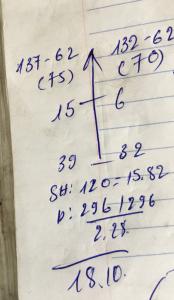 137-62 132-62
(75) (70)
15 6
39 32
SH: 120 = 15.82
D: 296 / 296
2.28
18.10.